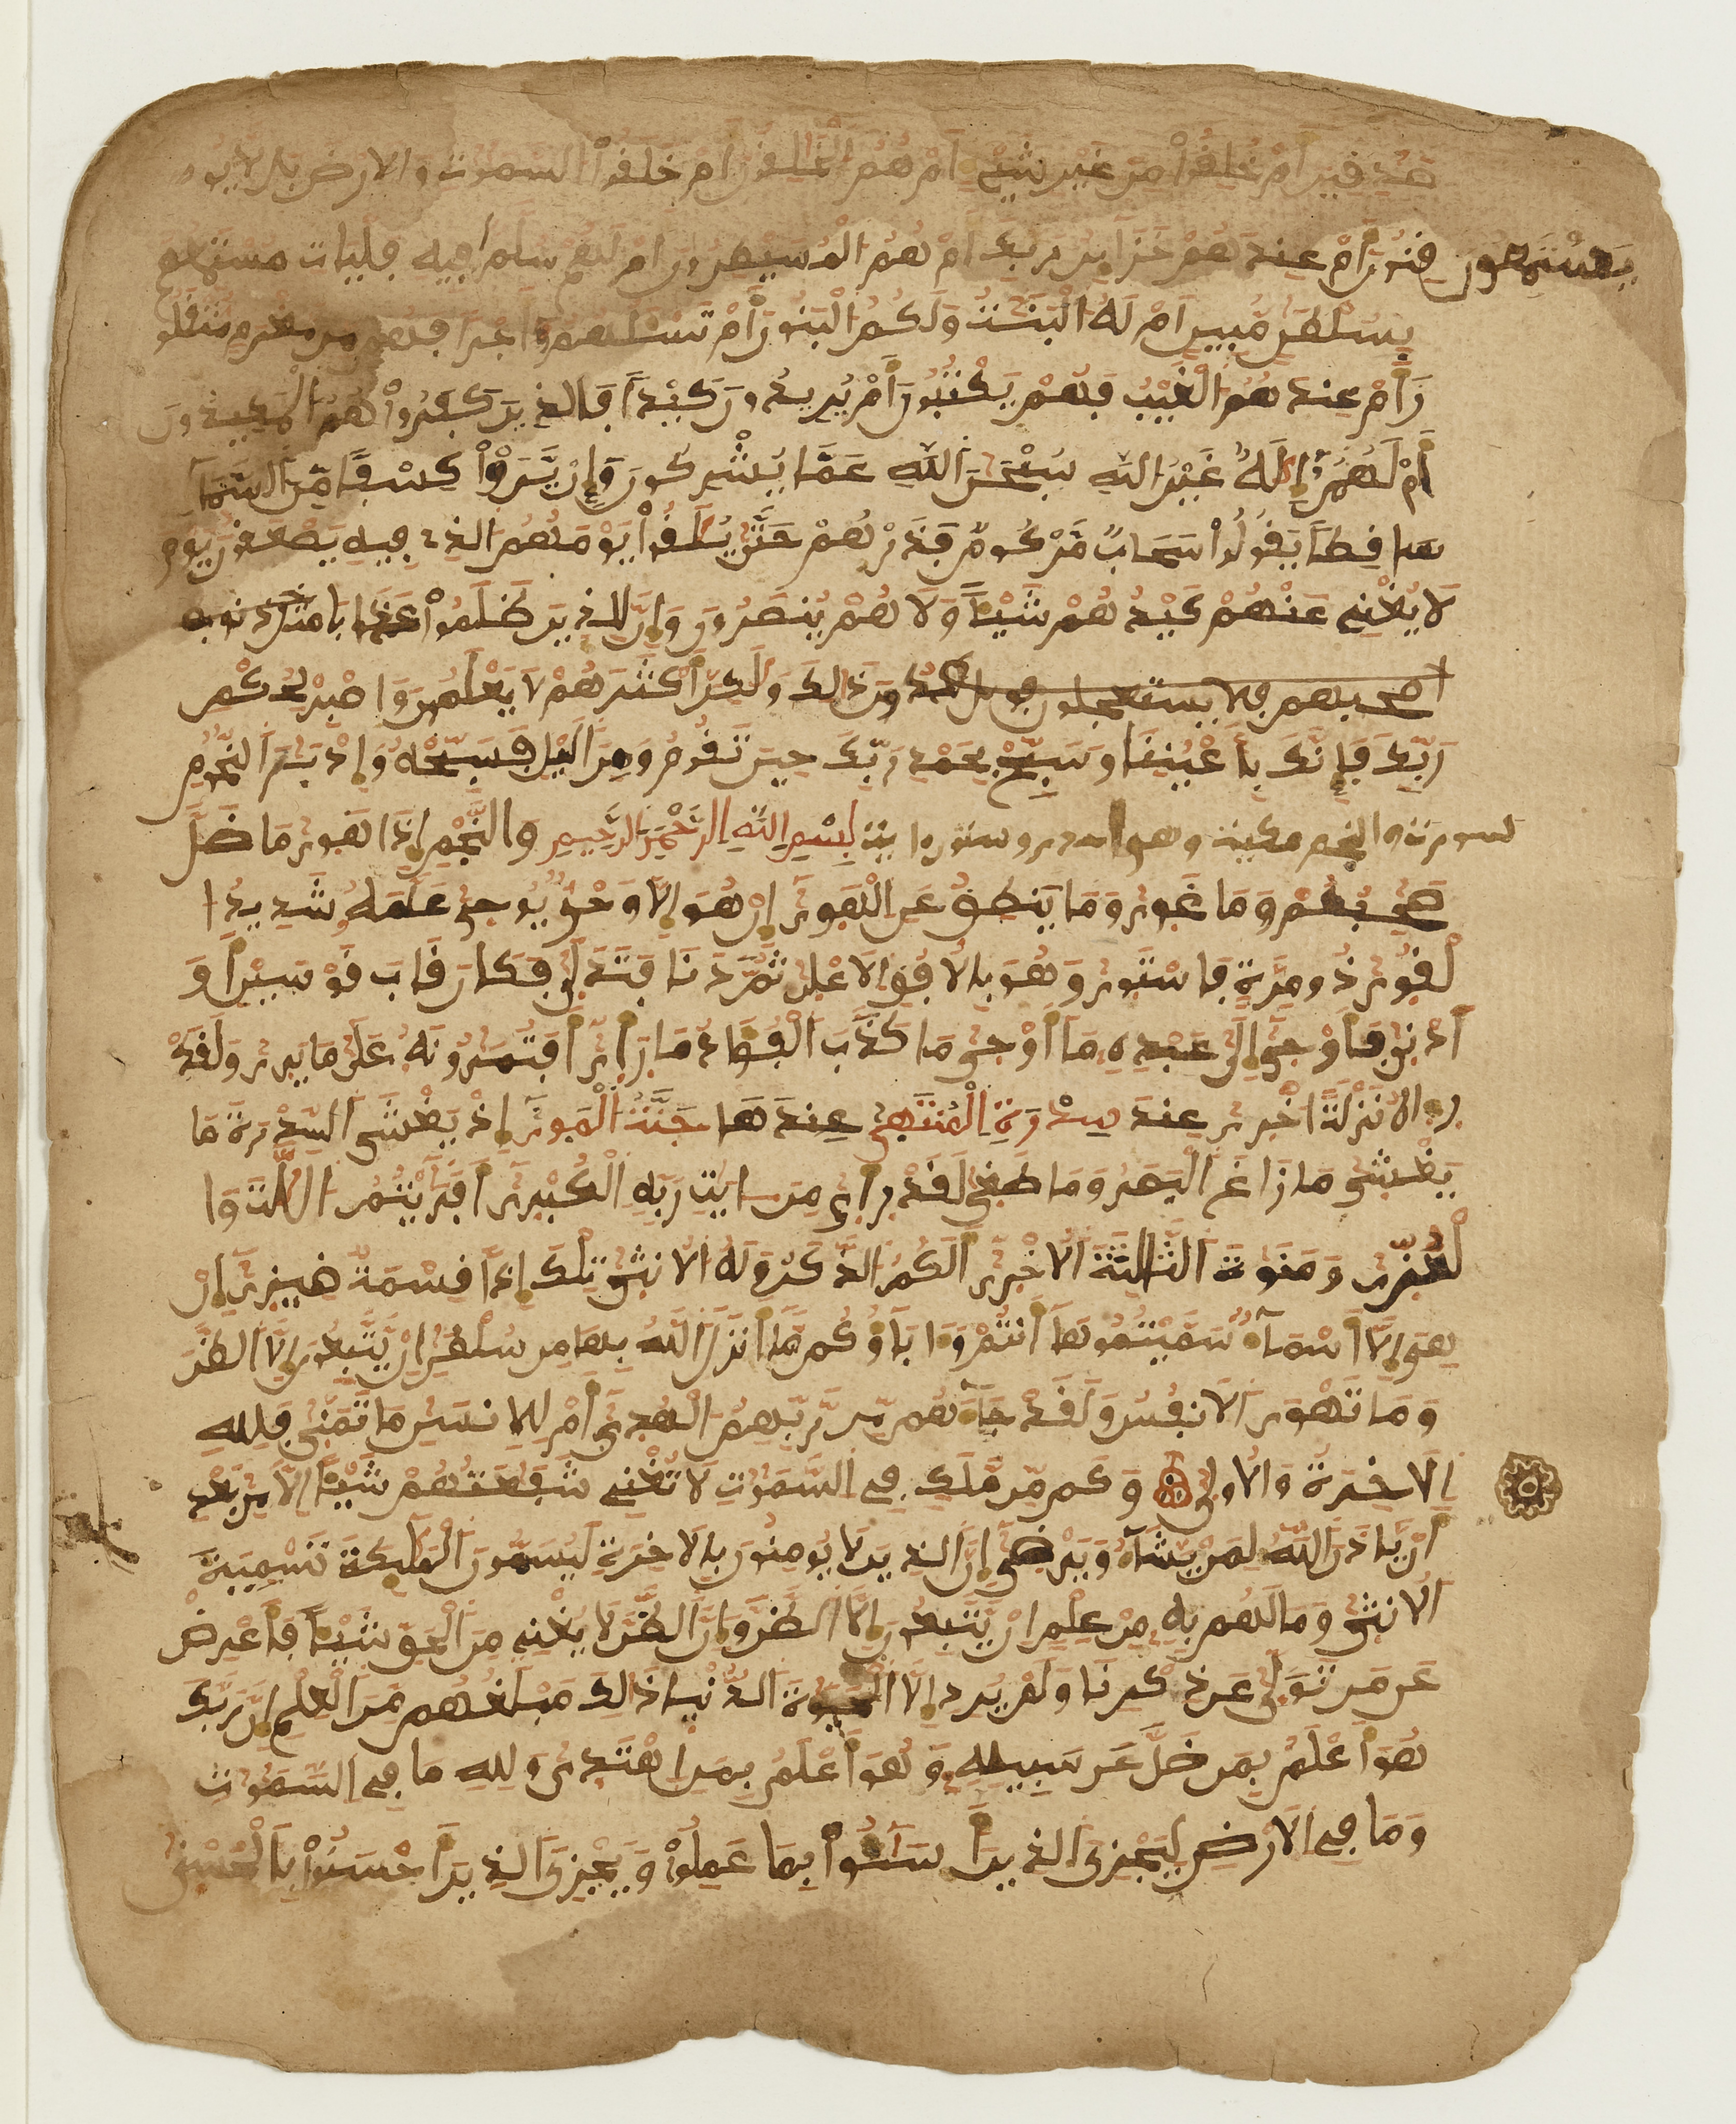 صدفين أم خلفوا من غير شيء أم هم الخلفون أم خلفوا السموت والارض بل لا يو
فنون أم عندهم خزاين ربك أم هم المصيطرون أم لهم سلم يستمعون فيه فليات مستمعهم
بسلطن مبين ام له البنت ولكم البنون أم تسئلهم أجرا فهم من مغرم مثقلو
ن أم عندهم الغيب فهم يكتبون أم يريدون كيدا فالذين كفروا هم المكيدون
أم لهم إله غير الله سبحن الله عما يشركون وإن يروا كسفا من السما
سافطا يفولوا سحاب مركوم فذرهم حتى يلفوا يومهم الذي فيه يصعفون يوم
لا يغني عنهم كيدهم شيئا ولا هم ينصرون وإن للذين ظلموا عذابا مثل ذنوب
اصحبهم فلا يستعجلون دون ذلك ولكن أكثرهم لا يعلمون واصبر لحكم
ربك فإنك بأعيننا وسبح بحمد ربك حين تفوم ومن اليل فسبحه وإدبر النجوم
سورت والنجم مكية وهو وستون اية بسم الله الرحمن الرحيم والنجم إذا هوى ما ضل
صحبكم وما غوى وما ينطق عن الهوى إن هو إلا وحي يوحى علمه شديد ا
لفوى ذو مرة فاستوى وهو بالافق الاعلى ثم دنا فتدلى فكان فاب فوسين أو
أدنى فأوحى إلى عبده ما أوحى ما كذب الفؤاد ما رأى أفتمرونه على ما يرى ولفد
راه نزلة اخرى عند سدرة المنتهى عندها جنت المأوى إذ يغشى السدرة ما
يغشى ما زاغ البصر وما طغى لفد رأى من ايت ربه الكبرى أفريتم اللت وا
لعزى ومنوة الثالثة الاخرى ألكم الذكر وله الانثى تلك إذا فسمة ضيزى إن
هي إلا أسماء سميتموها أنتم وءاباؤكم ما أنزل الله بها من سلطن إن يتبعون إلا الظن
وما تهوى الانفس ولفد جاءهم من ربهم الهدى أم للانسن ما تمنى فلله
الاخرة والاولى وكم من ملك في السموت لا تغني شفعتهم شيئا إلا من بعد
أن ياذن الله لمن يشاء ويرضى إن الذين لا يومنون بالاخرة ليسمون الملئكة تسمية
الانثى وما لهم به من علم إن يتبعون إلا الظن وإن الظن لا يغني من الحق شيئا فأعرض
عن من تولى عن ذكرنا ولم يرد إلا الحيوة الدنيا ذلك مبلغهم من العلم إن ربك
هو أعلم بمن ضل عن سبيله وهو أعلم بمن اهتدى ولله ما في السموت
وما في الارض ليجزي الذين أسئوا بما عملوا ويجزي الذين أحسنوا بالحسنى